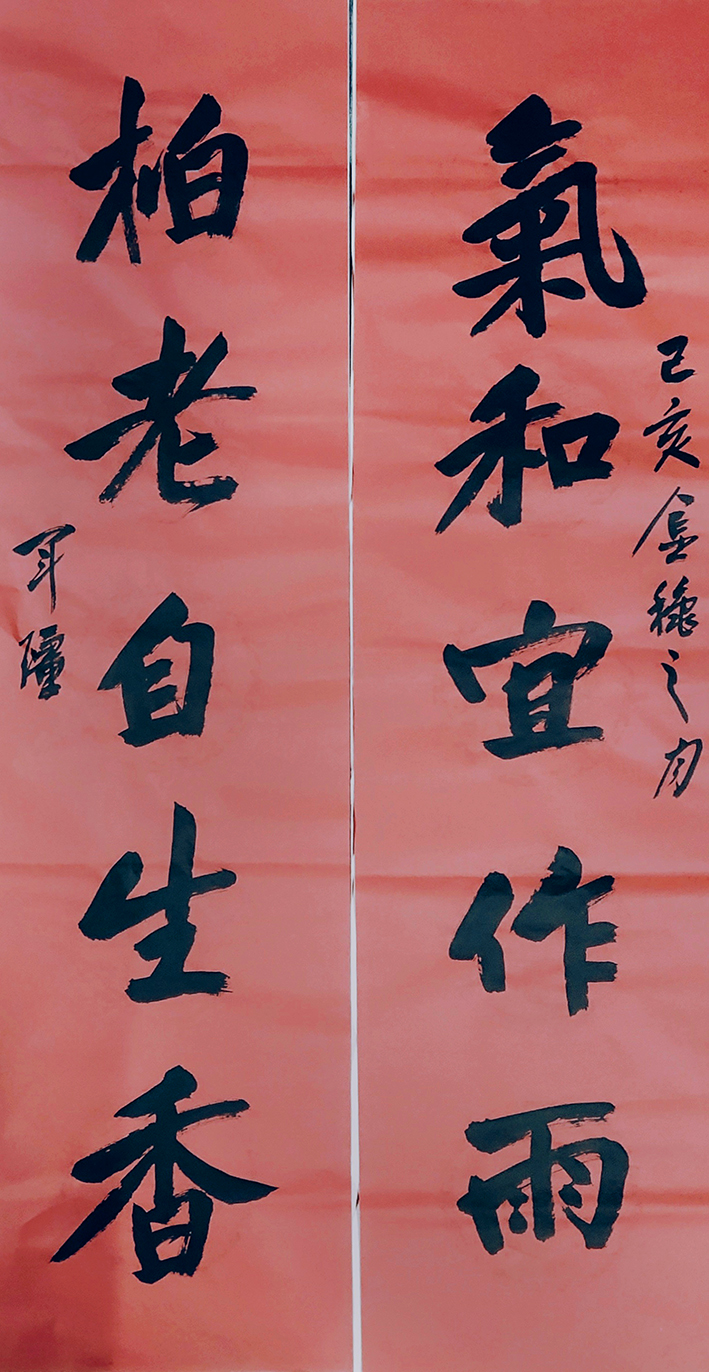 氣和宜作雨
己亥金穐之月
柏老自生香